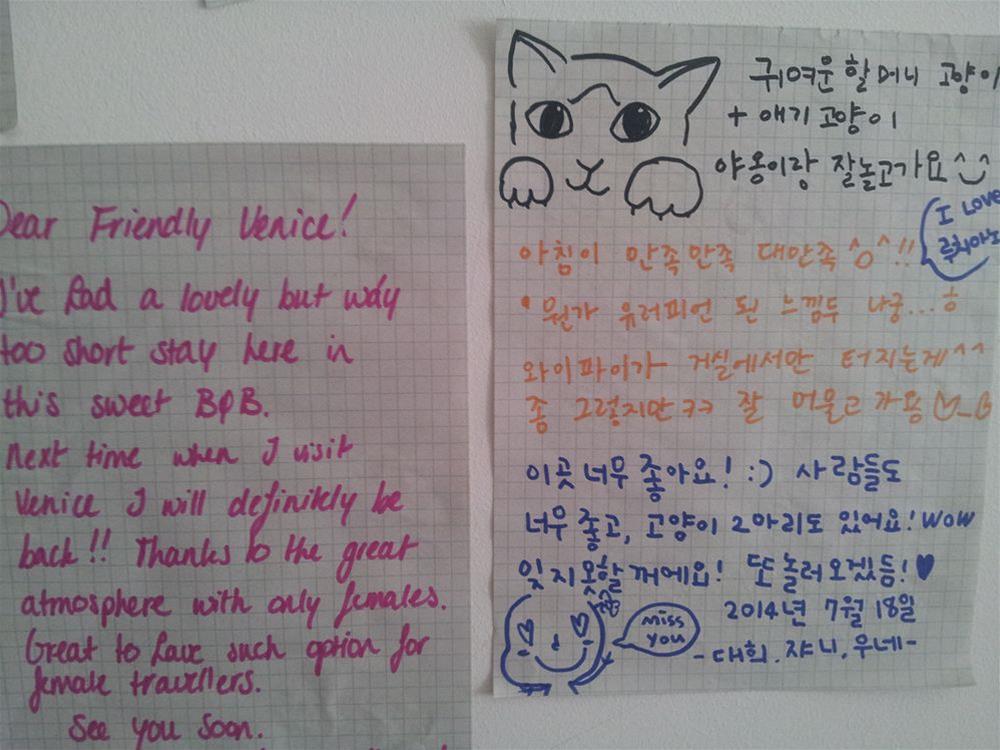 Dear Friendly Venice!
I've had a lovely but way
too short stay here in
this sweet B&B.
Next time when I visit
Venice I will definitely be
back!! Thanks to the great
atmosphere with only females.
Great to have such option for
female travellers.
See you soon.
귀여운 할머니 고양이
+ 애기 고양이
야옹이랑 잘놀고가요^_^
I LOVE
루치아노
아침이 만족만족 대만족^^!!
뭔가 유러피언 된 느낌두 나궁...ㅎ
와이파이가 거실에서만 터지는게^^
좀 그렇지만ㅋㅋ 잘 머물고 가용
이곳 너무 좋아요! :) 사람들도
너무 좋고, 고양이 2마리도 있어요! WOW
잊지못할 꺼에요! 또 놀러오겠듬! ♥
miss
you
2014년 7월 18일
-대희. 쟈니. 우네-